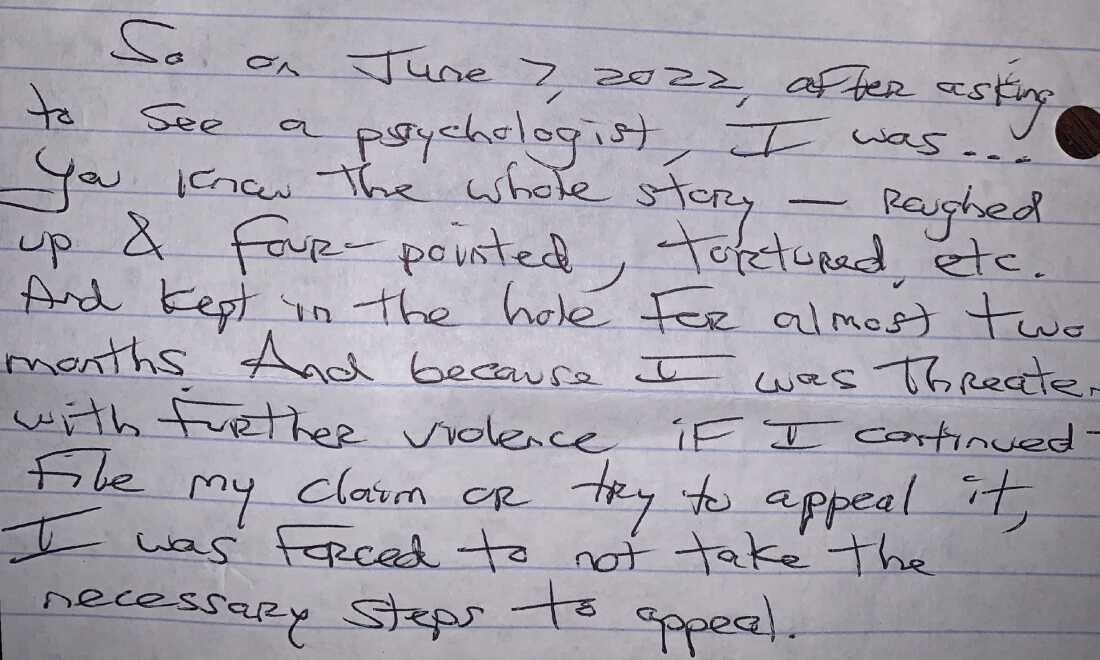 So on June 7, 2022, after asking
to see a psychologist, I was...
You know the whole story — Roughed
up & four-pointed, tortured, etc.
And kept in the hole for almost two
months. And because I was threate
with further violence if I continued
file my claim or try to appeal it,
I was forced to not take the
necessary steps to appeal.